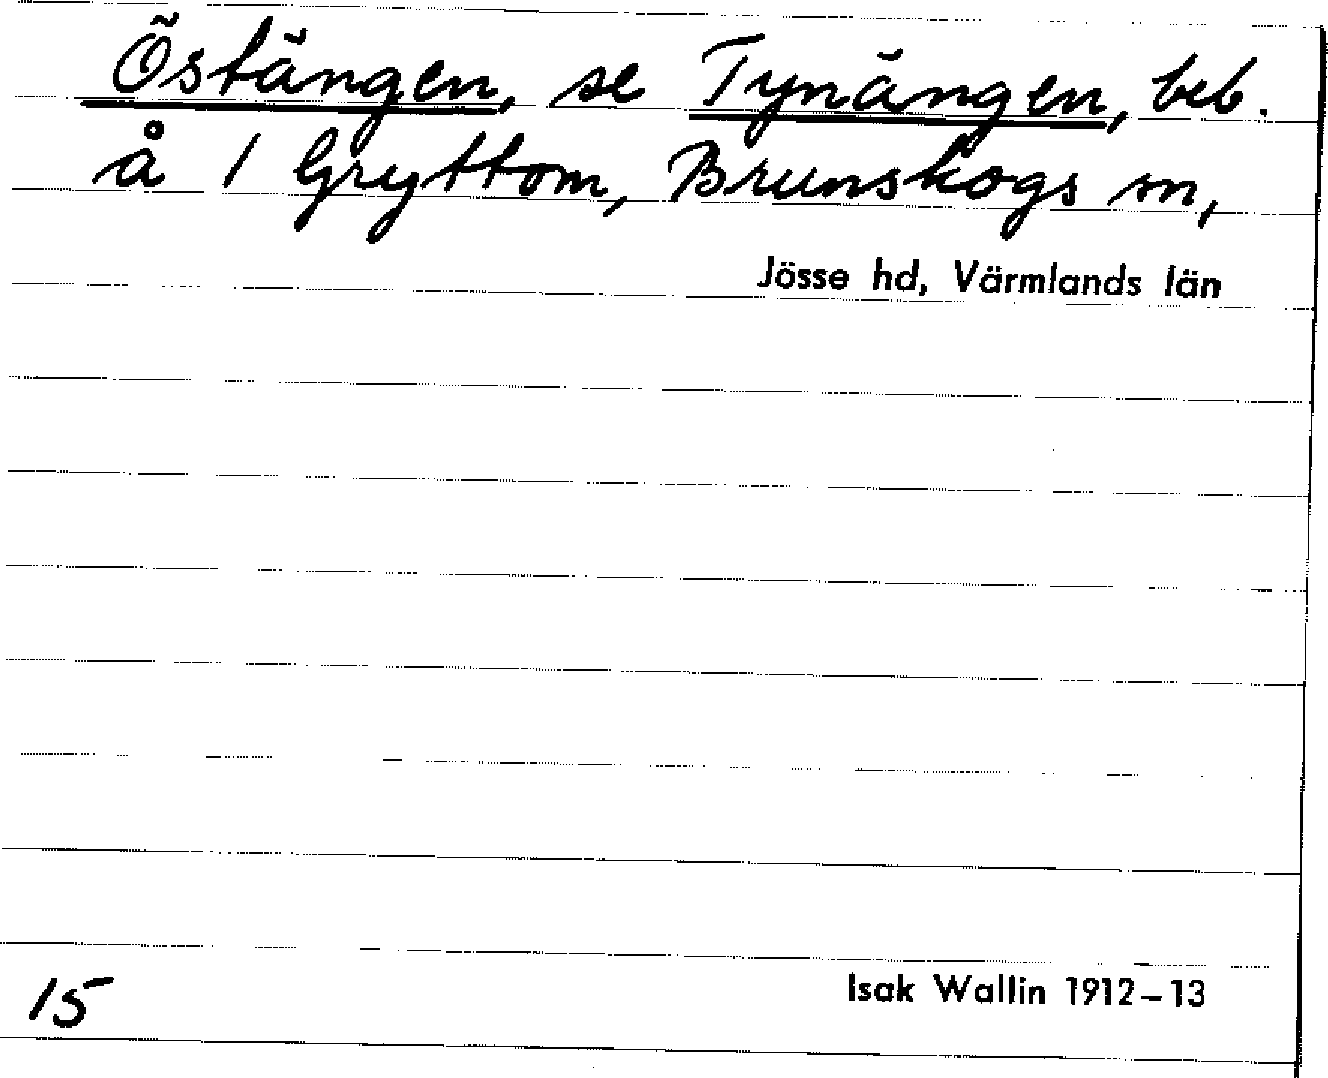 Östängen, se Tynängen, beb.
å 1 Gryttom, Brunskogs sn,
Jösse hd, Värmlands län
15
Isak Wallin 1912–13